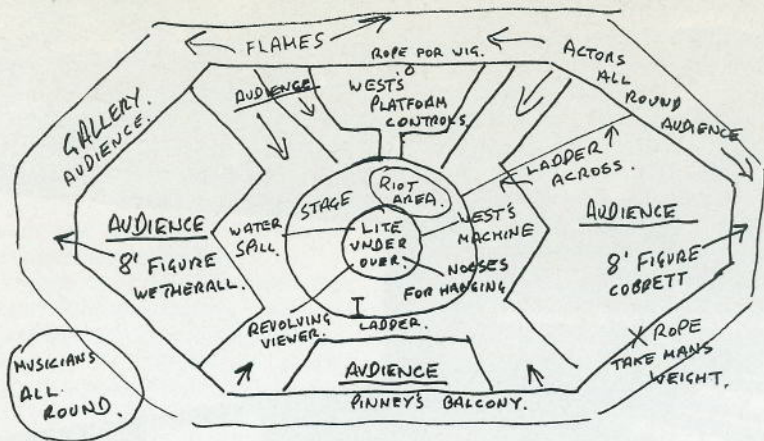 FLAMES
ROPE FOR WIG.
ACTORS
ALL
ROUND
AUDIENCE
GALLERY
AUDIENCE.
AUDIENCE
WEST'S
PLATFORM
CONTROLS.
LADDER
ACROSS.
STAGE
RIOT
AREA.
AUDIENCE
8' FIGURE
WETHERALL.
WATER
SPILL
LITE
UNDER
OVER.
WEST'S
MACHINE
NOOSES
FOR HANGING
AUDIENCE
8' FIGURE
COBBETT
REVOLVING
VIEWER.
LADDER.
X ROPE
TAKE MANS
WEIGHT.
MUSICIANS
ALL.
ROUND.
AUDIENCE
PINNEY'S BALCONY.